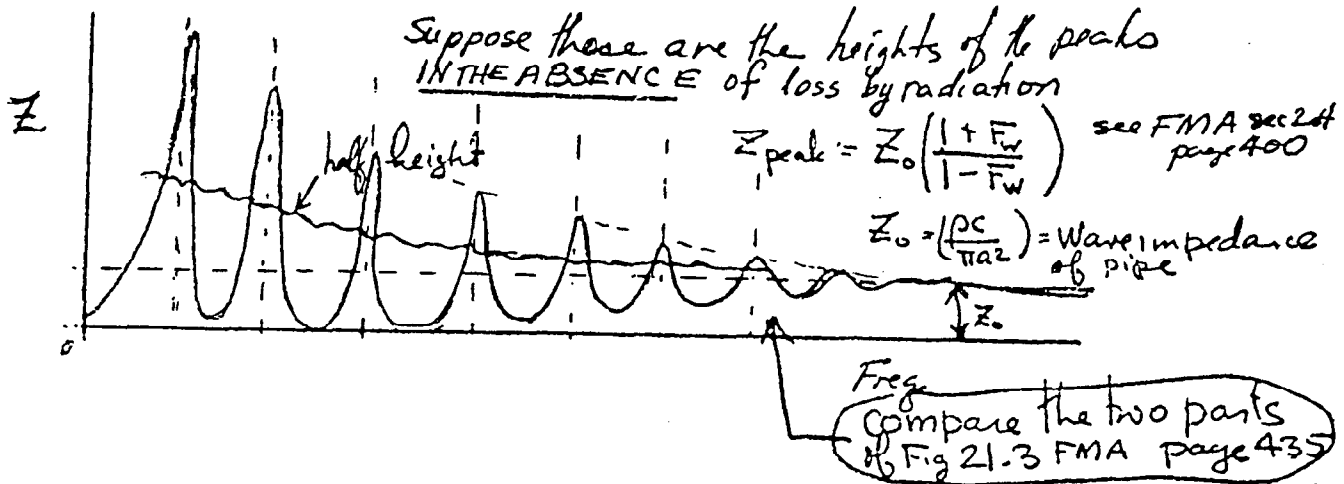 Suppose these are the heights of the peaks
IN THE ABSENCE of loss by radiation
Z
half height
Zpeak = Z₀ (1 + F_w / 1 - F_w)
see FMA sec 20.4
page 400
Z₀ = (ρc / πa²) = Wave impedance
of pipe
Z₀
0
Freq
Compare the two parts
of Fig 21.3 FMA page 435